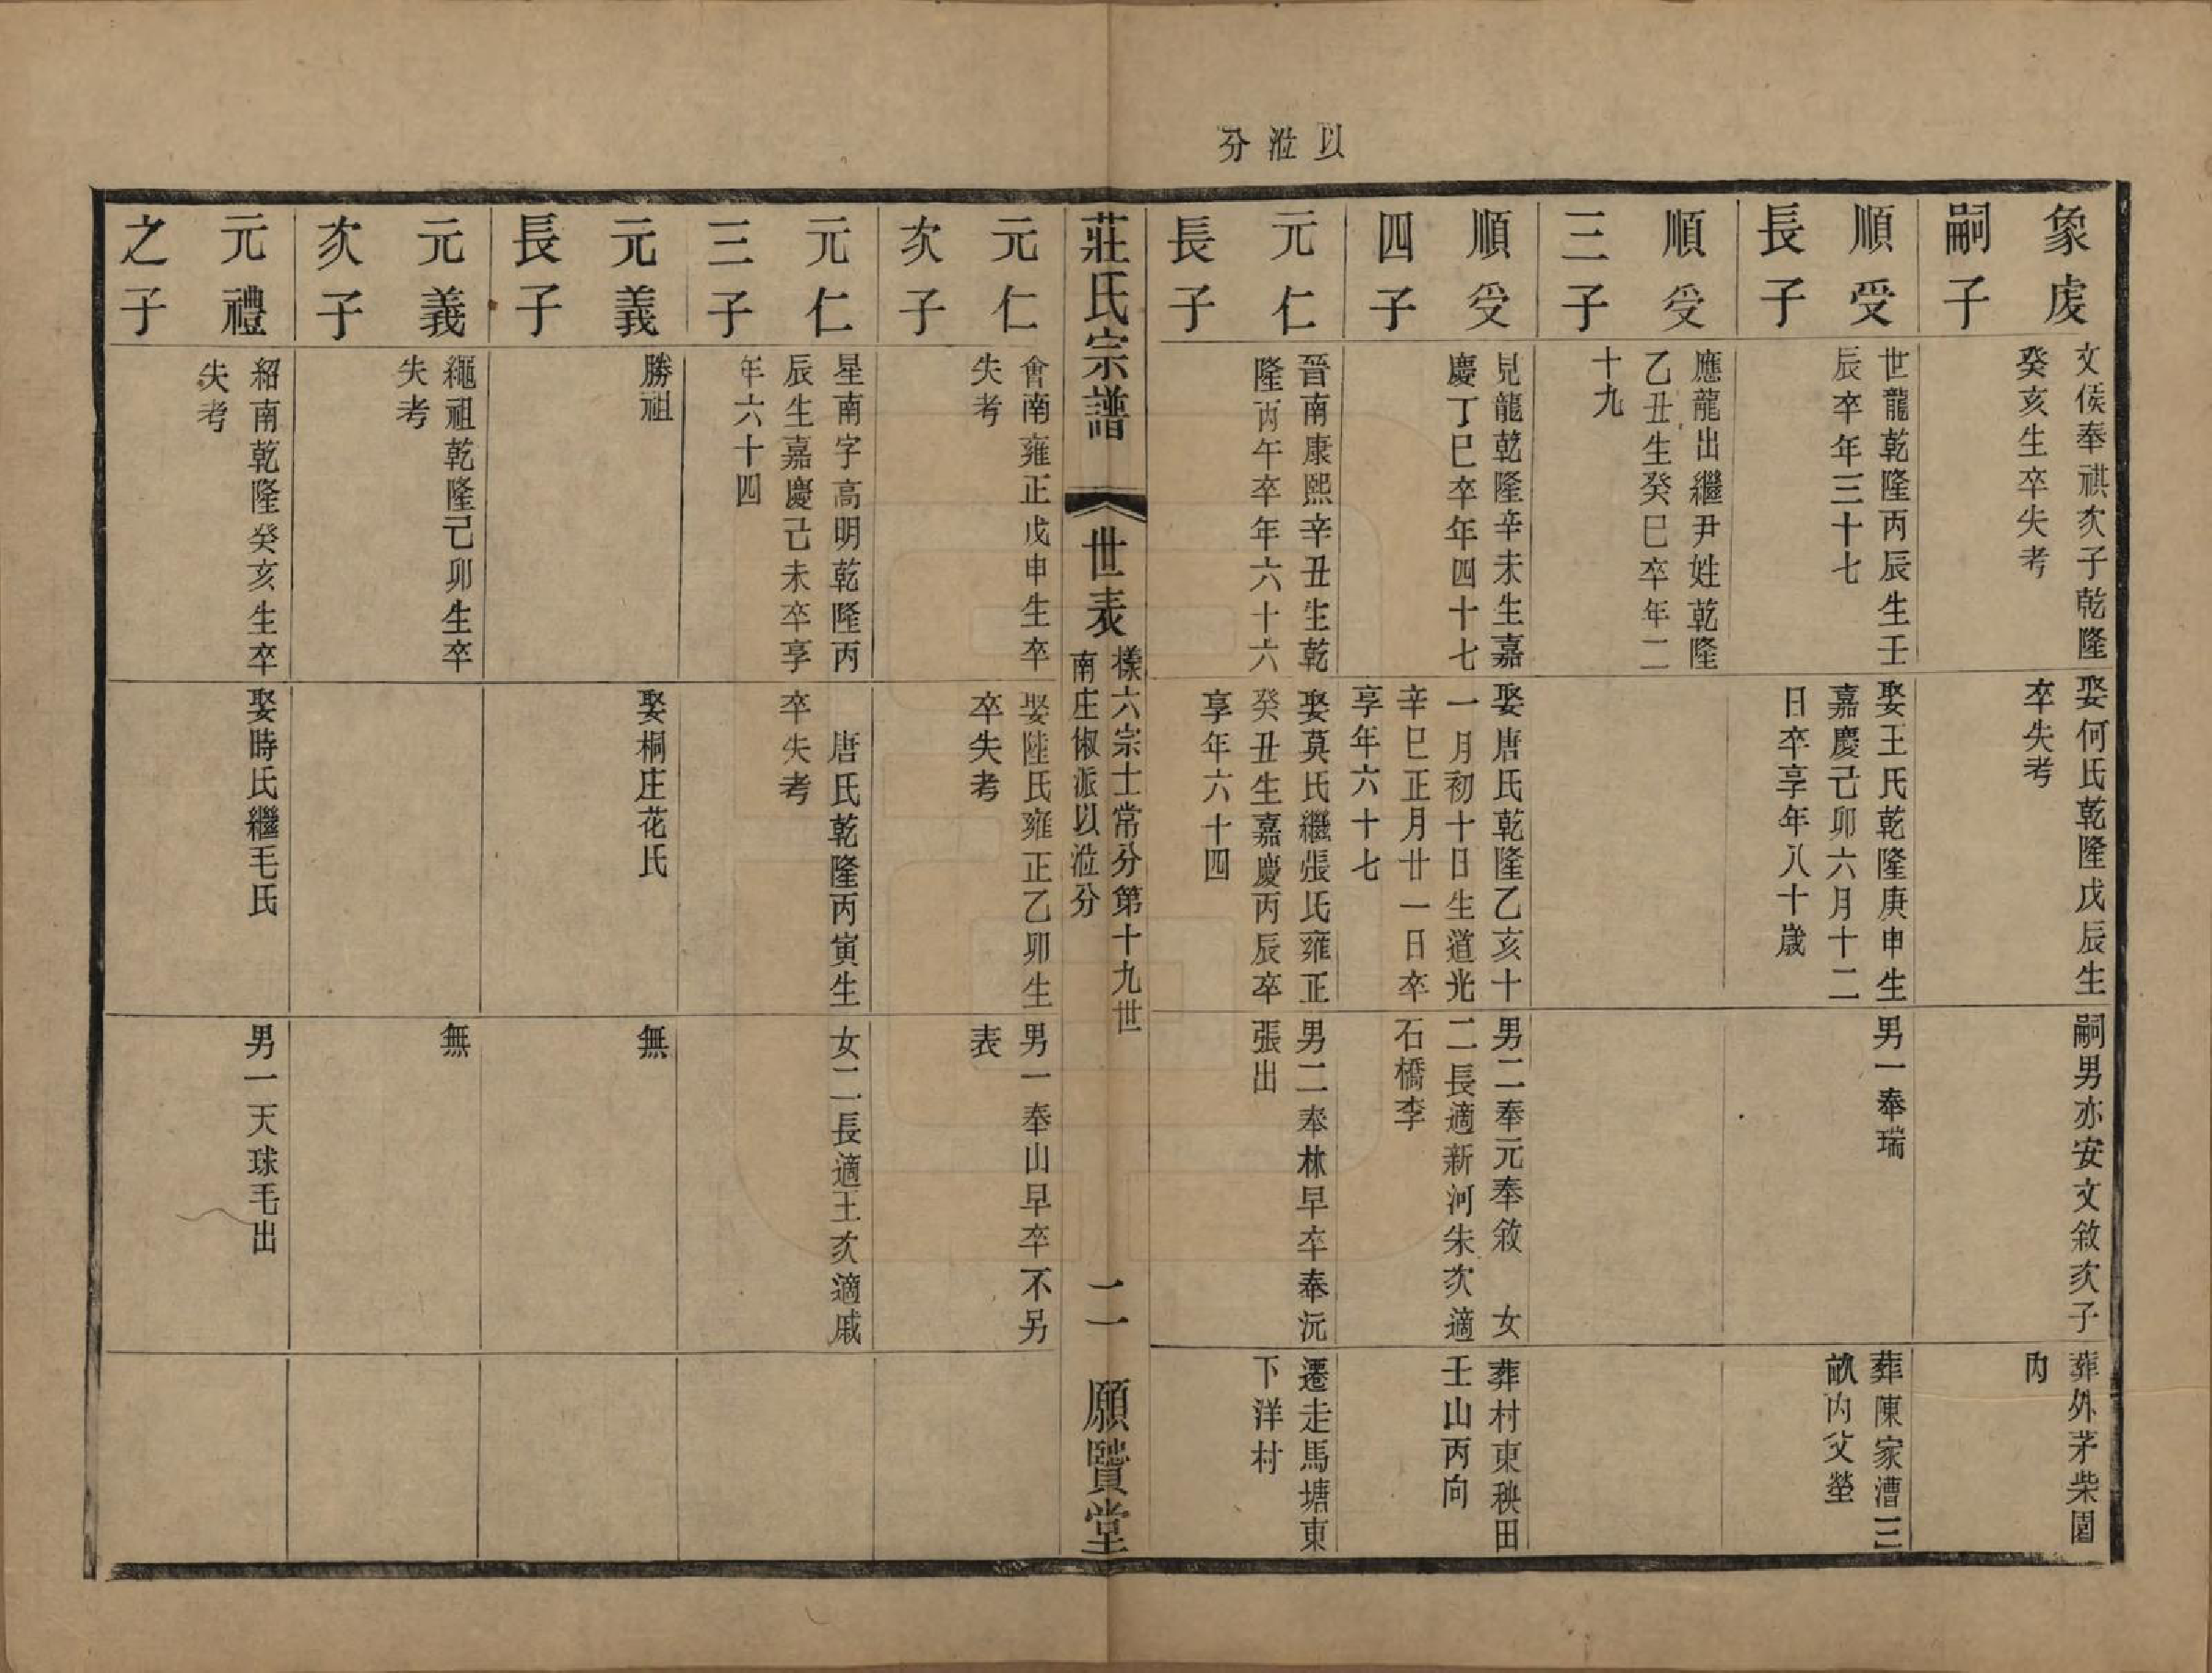 以涖分
象虔
嗣子
文侯奉祺次子乾隆
癸亥生卒失考
娶何氏乾隆戊辰生
卒失考
嗣男亦安文敘次子
葬外茅柴園
內
順受
長子
世龍乾隆丙辰生壬
辰卒年三十七
娶王氏乾隆庚申生
嘉慶己卯六月十二
日卒享年八十歲
男一奉瑞
葬陳家漕三
畝內父塋
順受
三子
應龍出繼尹姓乾隆
乙丑生癸巳卒年二
十九
順受
四子
見龍乾隆辛未生嘉
慶丁巳卒年四十七
娶唐氏乾隆乙亥十
一月初十日生道光
辛巳正月廿一日卒
享年六十七
男二奉元奉敘 女
二長適新河朱次適
石橋李
葬村東秧田
壬山丙向
元仁
長子
晉南康熙辛丑生乾
隆丙午卒年六十六
娶莫氏繼張氏雍正
癸丑生嘉慶丙辰卒
享年六十四
男二奉林早卒奉沅
張出
遷走馬塘東
下洋村
莊氏宗譜
世表
樣六宗士常分第十九世
南庄俶派以涖分
二
願賢堂
元仁
次子
會南雍正戊申生卒
失考
娶陸氏雍正乙卯生
卒失考
男一奉山早卒不另
表
元仁
三子
星南字高明乾隆丙
辰生嘉慶己未卒享
年六十四
唐氏乾隆丙寅生
卒失考
女二長適王次適戚
元義
長子
勝祖
娶桐庄花氏
無
元義
次子
繩祖乾隆己卯生卒
失考
無
元禮
之子
紹南乾隆癸亥生卒
失考
娶時氏繼毛氏
男一天球毛出